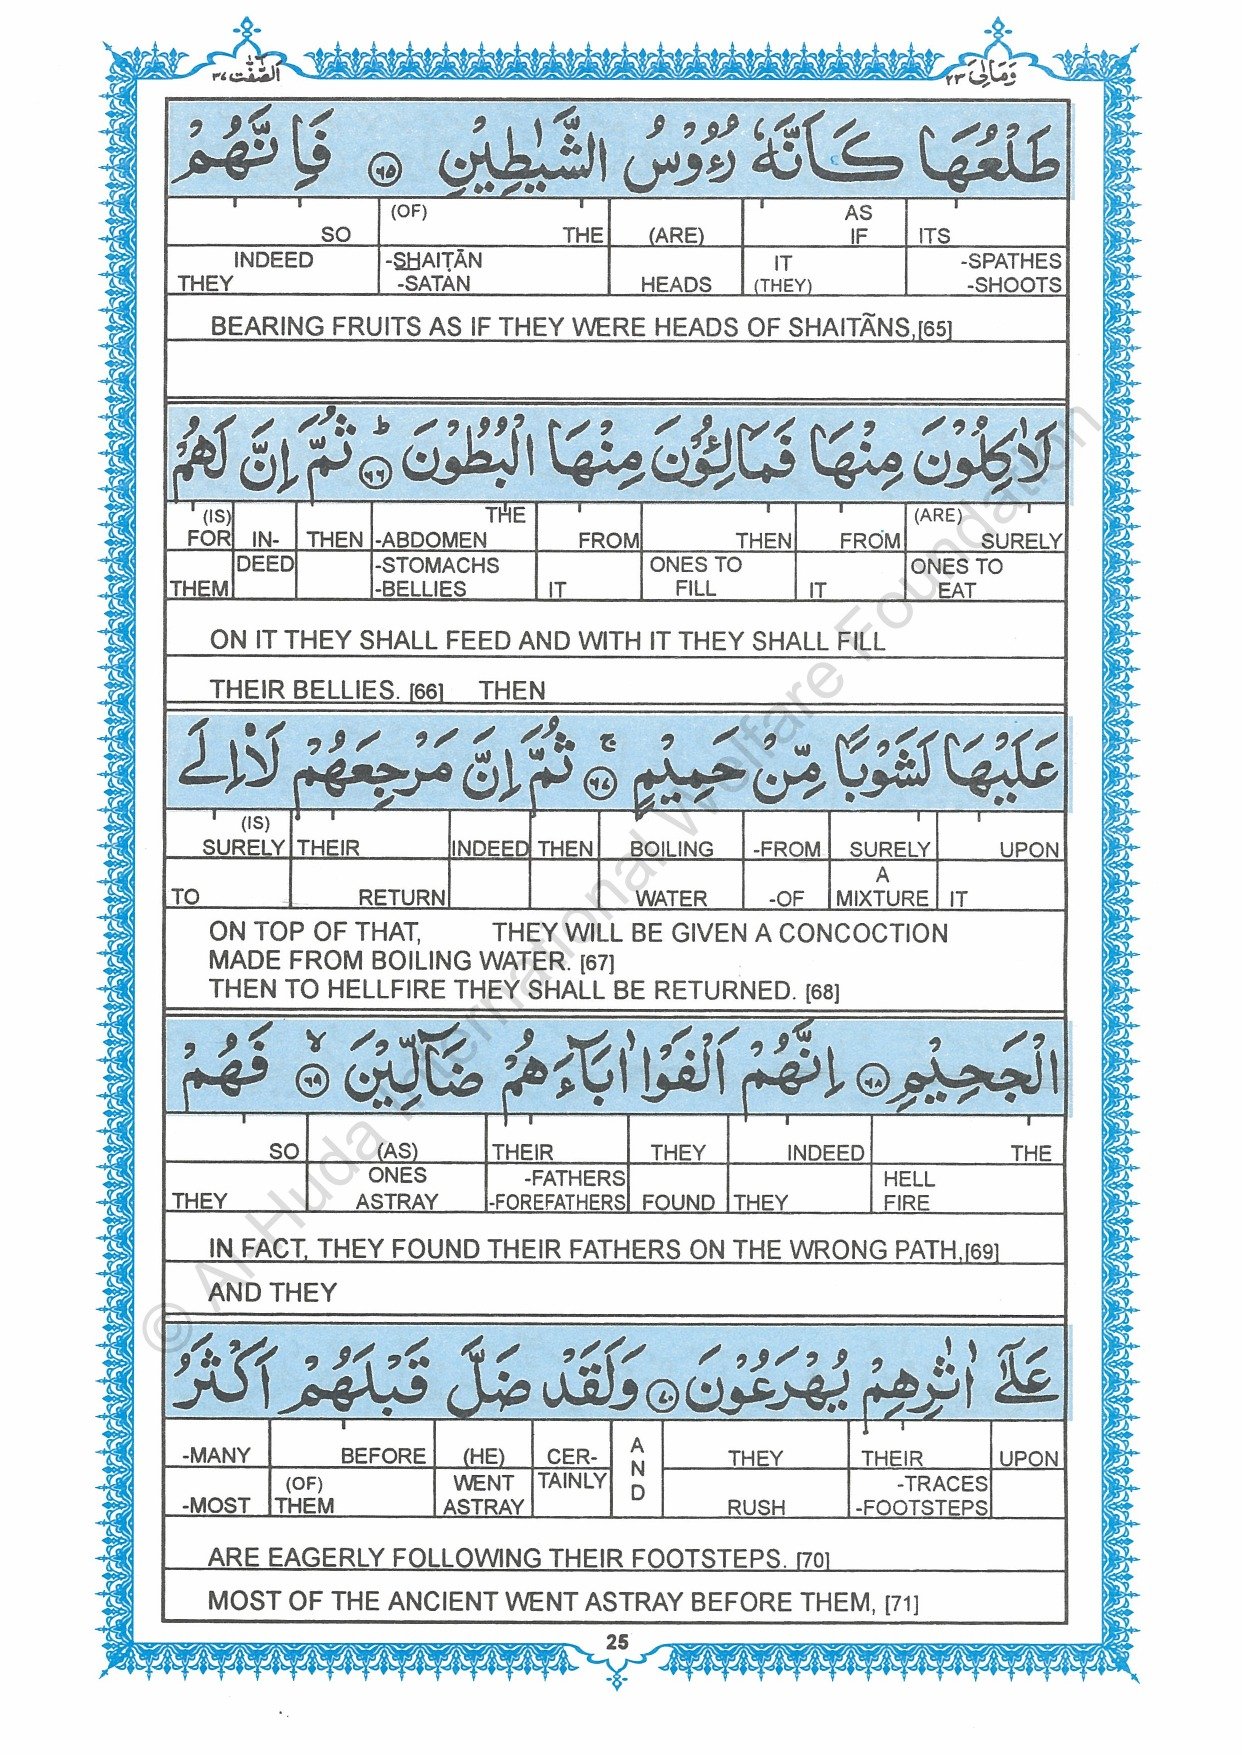 وَمَالِیَ ٢٣ اَلصّٰٓفّٰت ٣٧
طَلْعُهَا كَاَنَّهٗ رُءُوْسُ الشَّيٰطِيْنِ ٦٥ فَاِنَّهُمْ
ITS AS IF (ARE) (OF) THE SO
-SPATHES -SHOOTS IT (THEY) HEADS -SHAIṬĀN -SATAN INDEED THEY
BEARING FRUITS AS IF THEY WERE HEADS OF SHAITÃNS,[65]
لَاٰكِلُوْنَ مِنْهَا فَمَالِـُٔوْنَ مِنْهَا الْبُطُوْنَ ٦٦ ط ثُمَّ اِنَّ لَهُمْ
(ARE) SURELY FROM THEN FROM THE -ABDOMEN THEN IN- (IS) FOR
ONES TO EAT IT ONES TO FILL IT -STOMACHS -BELLIES DEED THEM
ON IT THEY SHALL FEED AND WITH IT THEY SHALL FILL
THEIR BELLIES. [66] THEN
عَلَيْهَا لَشَوْبًا مِّنْ حَمِيْمٍ ٦٧ ج ثُمَّ اِنَّ مَرْجِعَهُمْ لَا۟اِلَى
UPON SURELY -FROM BOILING THEN INDEED THEIR (IS) SURELY
IT A MIXTURE -OF WATER RETURN TO
ON TOP OF THAT, THEY WILL BE GIVEN A CONCOCTION
MADE FROM BOILING WATER. [67]
THEN TO HELLFIRE THEY SHALL BE RETURNED. [68]
الْجَحِيْمِ ٦٨ اِنَّهُمْ اَلْفَوْا اٰبَآءَهُمْ ضَآلِّيْنَ ٦٩ لا فَهُمْ
THE INDEED THEY THEIR (AS) SO
HELL FIRE THEY FOUND -FATHERS -FOREFATHERS ONES ASTRAY THEY
IN FACT, THEY FOUND THEIR FATHERS ON THE WRONG PATH,[69]
AND THEY
عَلٰٓى اٰثٰرِهِمْ يُهْرَعُوْنَ ٧٠ وَلَقَدْ ضَلَّ قَبْلَهُمْ اَكْثَرُ
UPON THEIR THEY AND CER- (HE) BEFORE -MANY
-TRACES -FOOTSTEPS RUSH TAINLY WENT ASTRAY (OF) THEM -MOST
ARE EAGERLY FOLLOWING THEIR FOOTSTEPS. [70]
MOST OF THE ANCIENT WENT ASTRAY BEFORE THEM, [71]
25
© Al Huda International Welfare Foundation